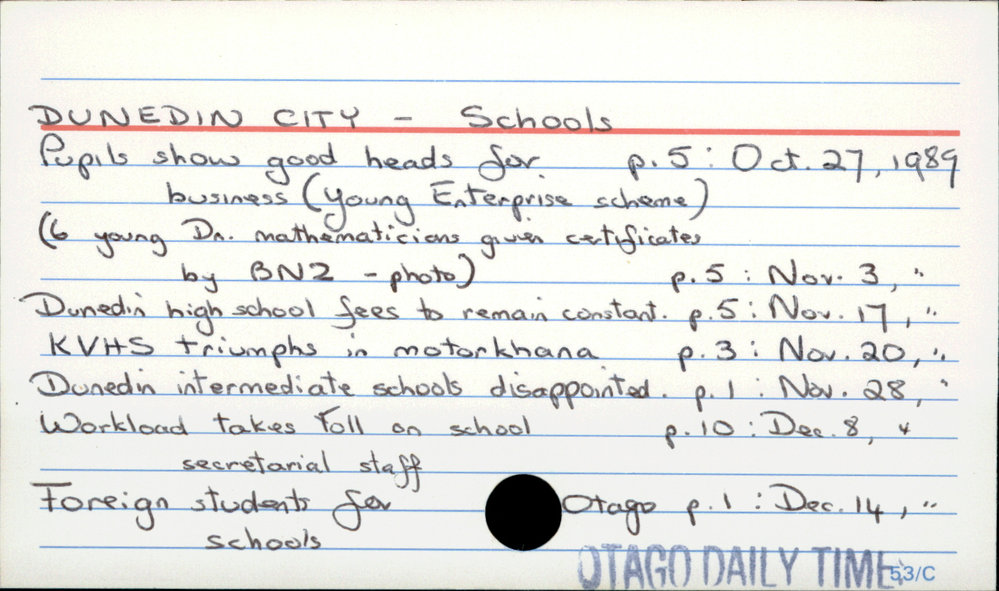 DUNEDIN CITY - Schools
Pupils show good heads for p.5 : Oct. 27, 1989
business (Young Enterprise scheme)
(6 young Dn. mathematicians given certificates
by BNZ - photo) p.5 : Nov. 3, "
Dunedin high school fees to remain constant. p.5 : Nov. 17, "
KVHS triumphs in motorkhana p.3 : Nov. 20, "
Dunedin intermediate schools disappointed. p.1 : Nov. 28, "
Workload takes toll on school p.10 : Dec. 8, "
secretarial staff
Foreign students for Otago p.1 : Dec. 14, "
schools
OTAGO DAILY TIMES
53/C